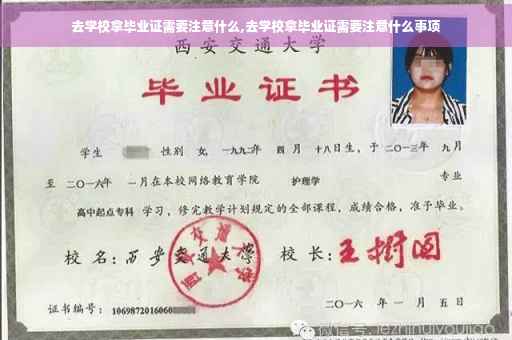 去学校拿毕业证需要注意什么,去学校拿毕业证需要注意什么事项
西安交通大学
毕业证书
学生 性别 女, 一九九二年 四 月 十八日生, 于 二〇一三年 九月
至 二〇一六年 一月在本校网络教育学院 护理学 专业
高中起点专科 学习, 修完教学计划规定的全部课程, 成绩合格, 准予毕业。
校 名: 西安交通大学 校 长: 王树国
西安交通大学
证书编号: 1069872016060
二〇一六 年 一 月 五 日
微信号: jezhinuiyoujiao